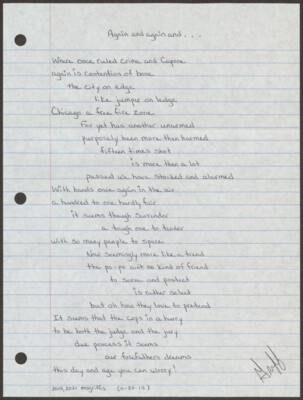 Again and again and . . .
Where once ruled crime and Capone
again is contention of bone
the city on edge
like jumper on ledge
Chicago a free fire zone
For yet has another unarmed
purposely been more than harmed
fifteen times shot
is more than a lot
passed we have shocked and alarmed
With hands once again in the air
a hundred to one hardly fair
it seems though surrender
a tough one to tender
with so many people to spare
Now seemingly more like a trend
the po-po ain't no kind of friend
to serve and protect
is rather select
but oh how they love to pretend
It seems that the cops in a hurry
to be both the judge and the jury
due process it seems
our forefathers dreams
this day and age you can worry!